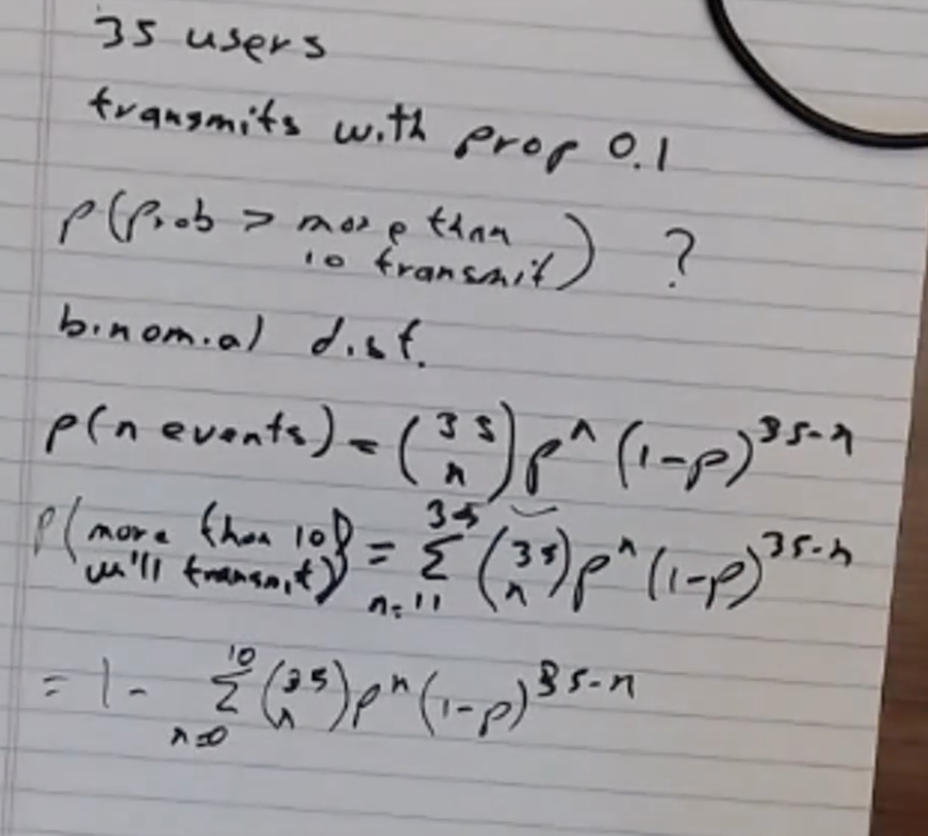 35 users
transmits with prop 0.1
P(Prob > more than
10 transmit) ?
binomial dist.
P(n events) = (35 n) p^n (1-p)^35-n
P(more than 10
will transmit) = 35 Σ n=11 (35 n) p^n (1-p)^35-n
= 1 - 10 Σ n=0 (35 n) p^n (1-p)^35-n